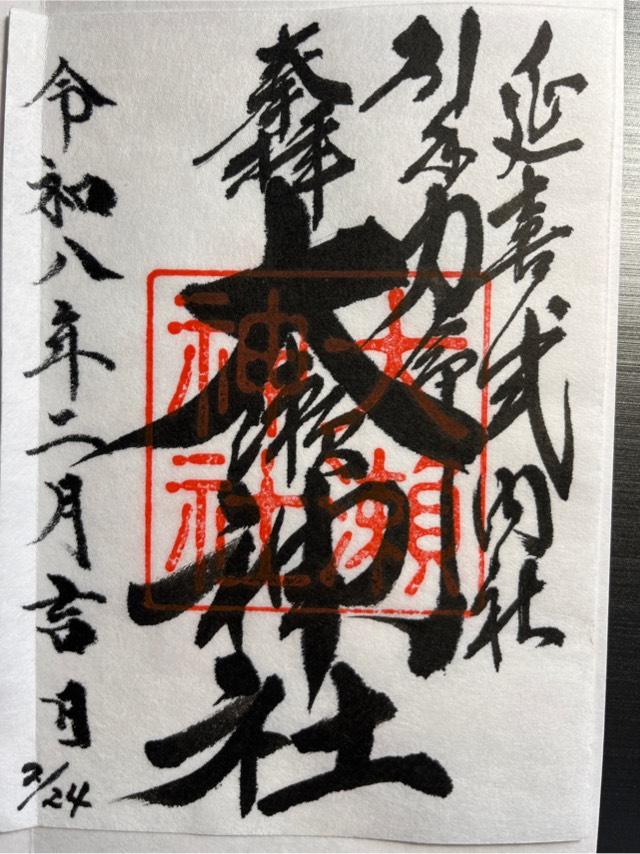 延喜式内社
引手力命
奉拝
大瀬神社
大瀬
神社
令和八年二月吉日
2/24